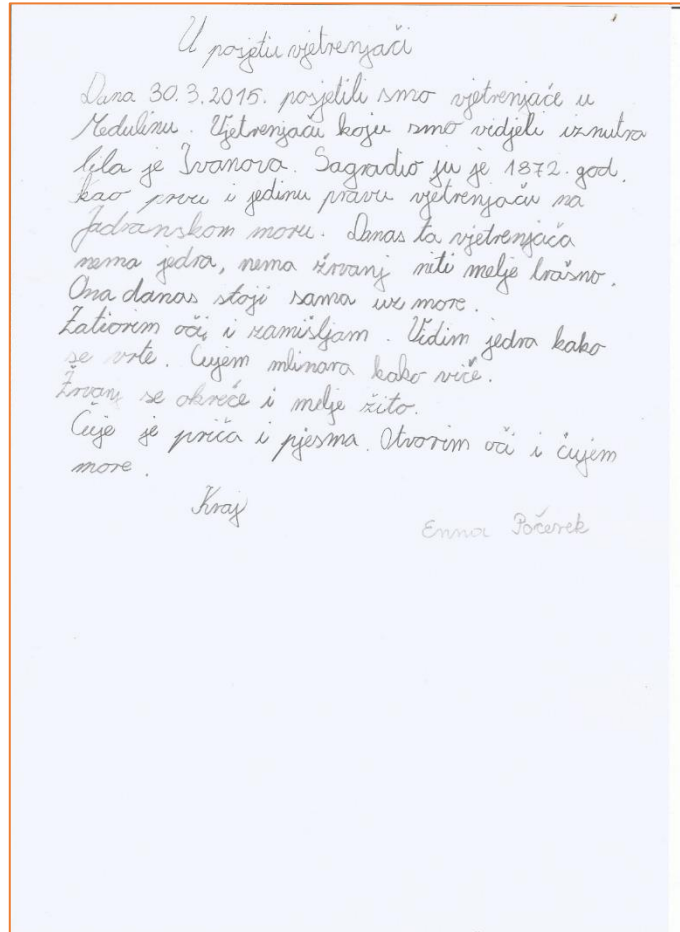 U posjetu vjetrenjači
Dana 30.3.2015. posjetili smo vjetrenjače u
Medulinu. Vjetrenjaču koju smo vidjeli iznutra
bila je Ivanova. Sagradio ju je 1872. god.
kao prvu i jedinu pravu vjetrenjaču na
Jadranskom moru. Danas ta vjetrenjača
nema jedra, nema žrvanj niti melje brašno.
Ona danas stoji sama uz more.
Zatvorim oči i zamišljam. Vidim jedra kako
se vrte. Čujem mlinara kako viče.
Žrvanj se okreće i melje žito.
Čuje je priča i pjesma. Otvorim oči i čujem
more.
Kraj
Enna Počerek